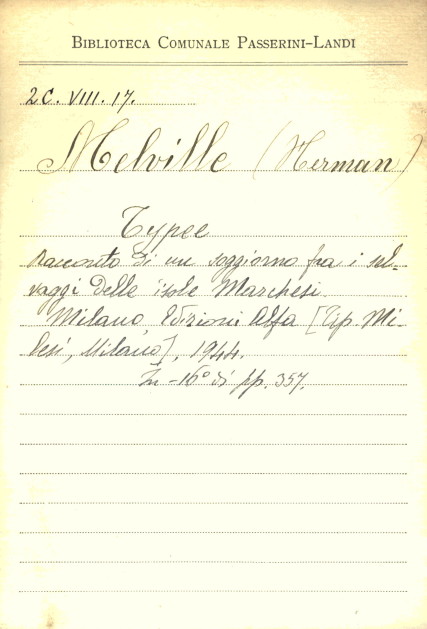 BIBLIOTECA COMUNALE PASSERINI-LANDI
2C. VIII. 17.
Melville (Herman)
Typee
Racconto di un soggiorno fra i sel-
vaggi delle isole Marchesi.
Milano, Edizioni Alfa [Tip. Mi-
lesi, Milano], 1944.
In-16° di pp. 357.